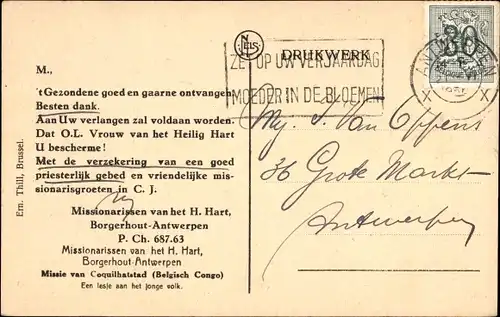 NELS
DRUKWERK
30
ZET OP UW VERJAARDAG
MOEDER IN DE BLOEMEN
ANTWERPEN
X X
M.,
't Gezondene goed en gaarne ontvangen.
Besten dank.
Aan Uw verlangen zal voldaan worden.
Dat O.L. Vrouw van het Heilig Hart
U bescherme!
Met de verzekering van een goed
priesterlijk gebed en vriendelijke mis-
sionarisgroeten in C. J.
Missionarissen van het H. Hart,
Borgerhout-Antwerpen
P. Ch. 687.63
Missionarissen van het H. Hart,
Borgerhout-Antwerpen
Missie van Coquilhatstad (Belgisch Congo)
Een lesje aan het jonge volk.
Ern. Thill, Brussel.
Mej. J. Van Oppens
36 Grote Markt
Antwerpen